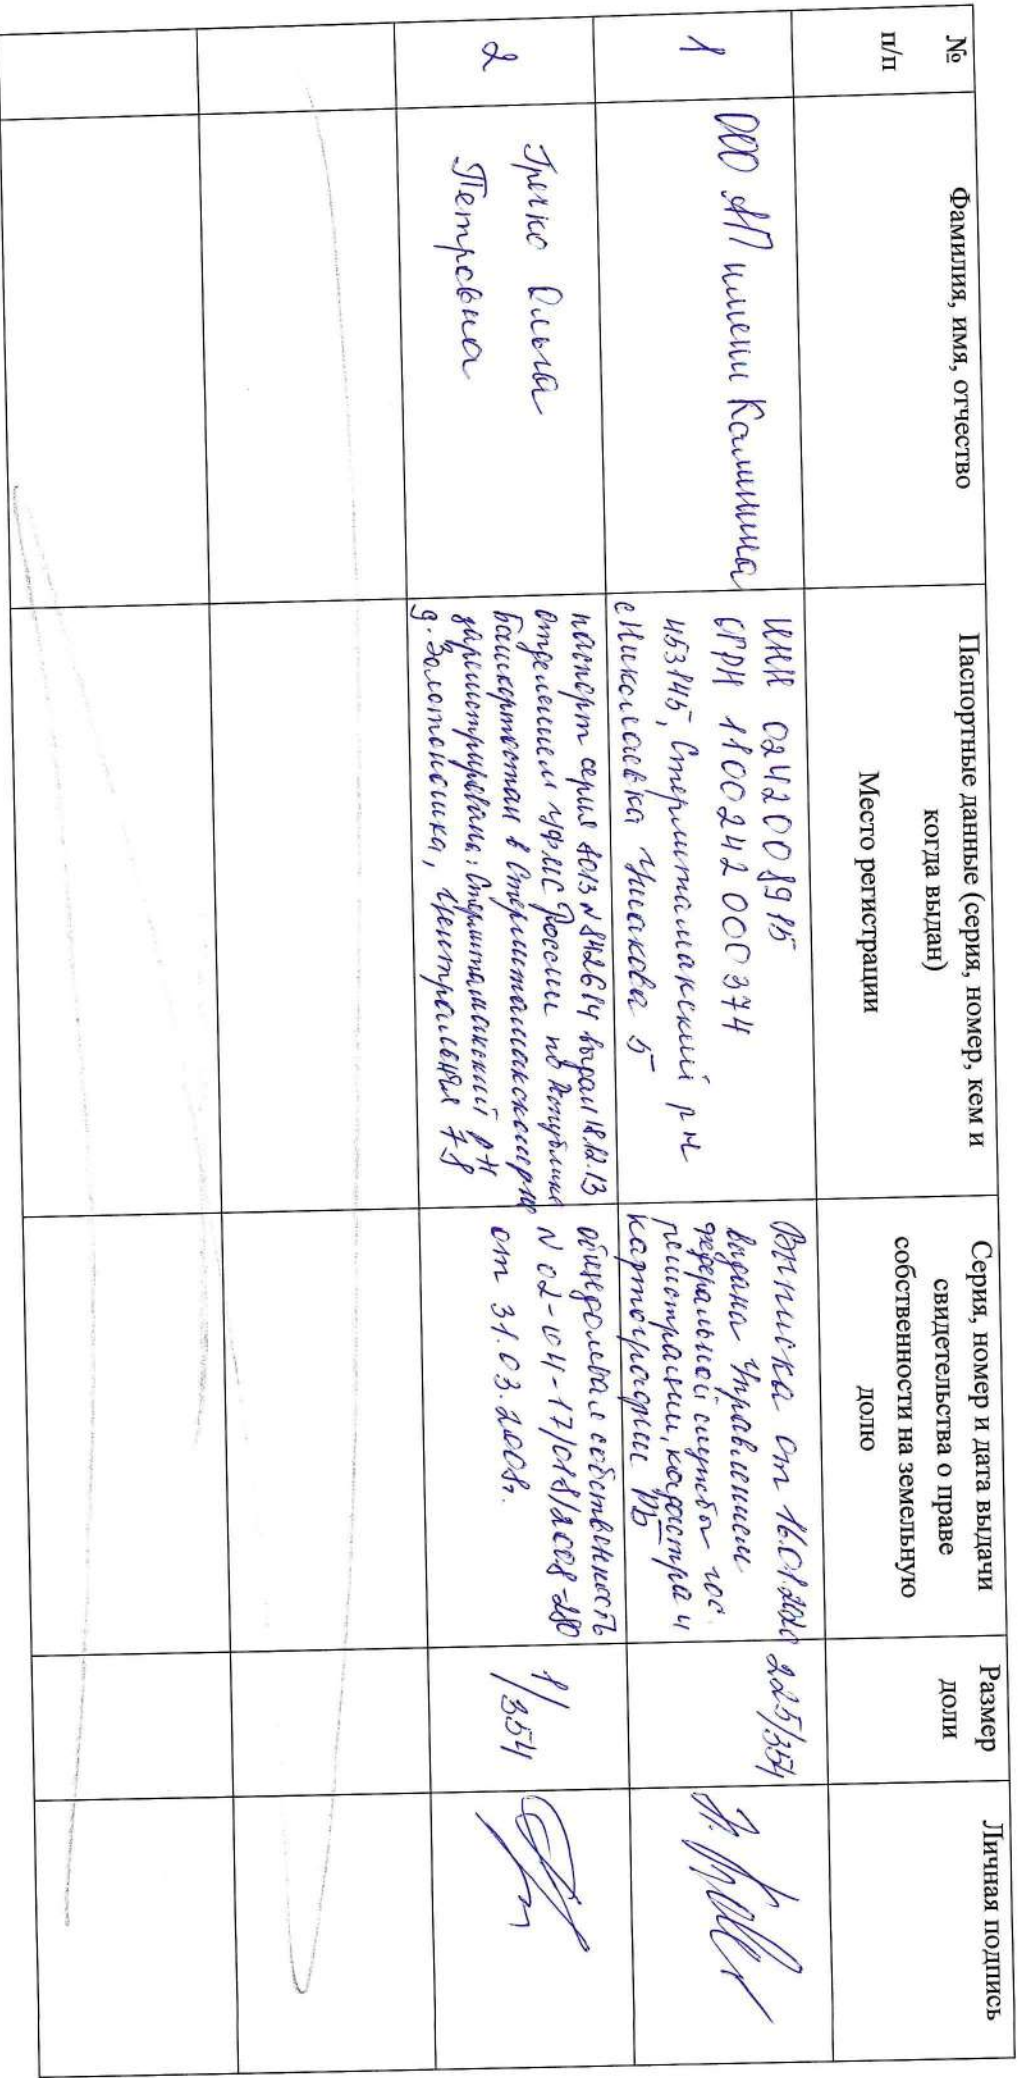 №
п/п
Фамилия, имя, отчество
Паспортные данные (серия, номер, кем и
когда выдан)
Место регистрации
Серия, номер и дата выдачи
свидетельства о праве
собственности на земельную
долю
Размер
доли
Личная подпись
1
ООО АП имени Калинина
ИНН 0242008915
ОГРН 1100242000374
453145, Стерлитамакский р н
с Николаевка Ушакова 5
Выписка от 16.01.2020
выдана Управлением
федеральной службы гос.
регистрации, кадастра и
картографии РБ
225/354
2
Гречко Ольга
Петровна
паспорт серия 8013 N 842614 выдан 18.12.13
отделением УФМС России по Республике
Башкортостан в Стерлитамакском р не
зарегистрирована: Стерлитамакский р н
д. Золотоношка, Центральная 78
общедолевая собственность
N 02-04-17/018/2008-280
от 31.03.2008г.
1/354